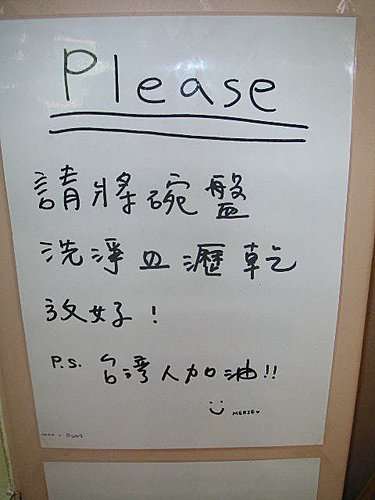 Please
請將碗盤
洗淨皿瀝乾
放好!
P.S. 台灣人加油!!